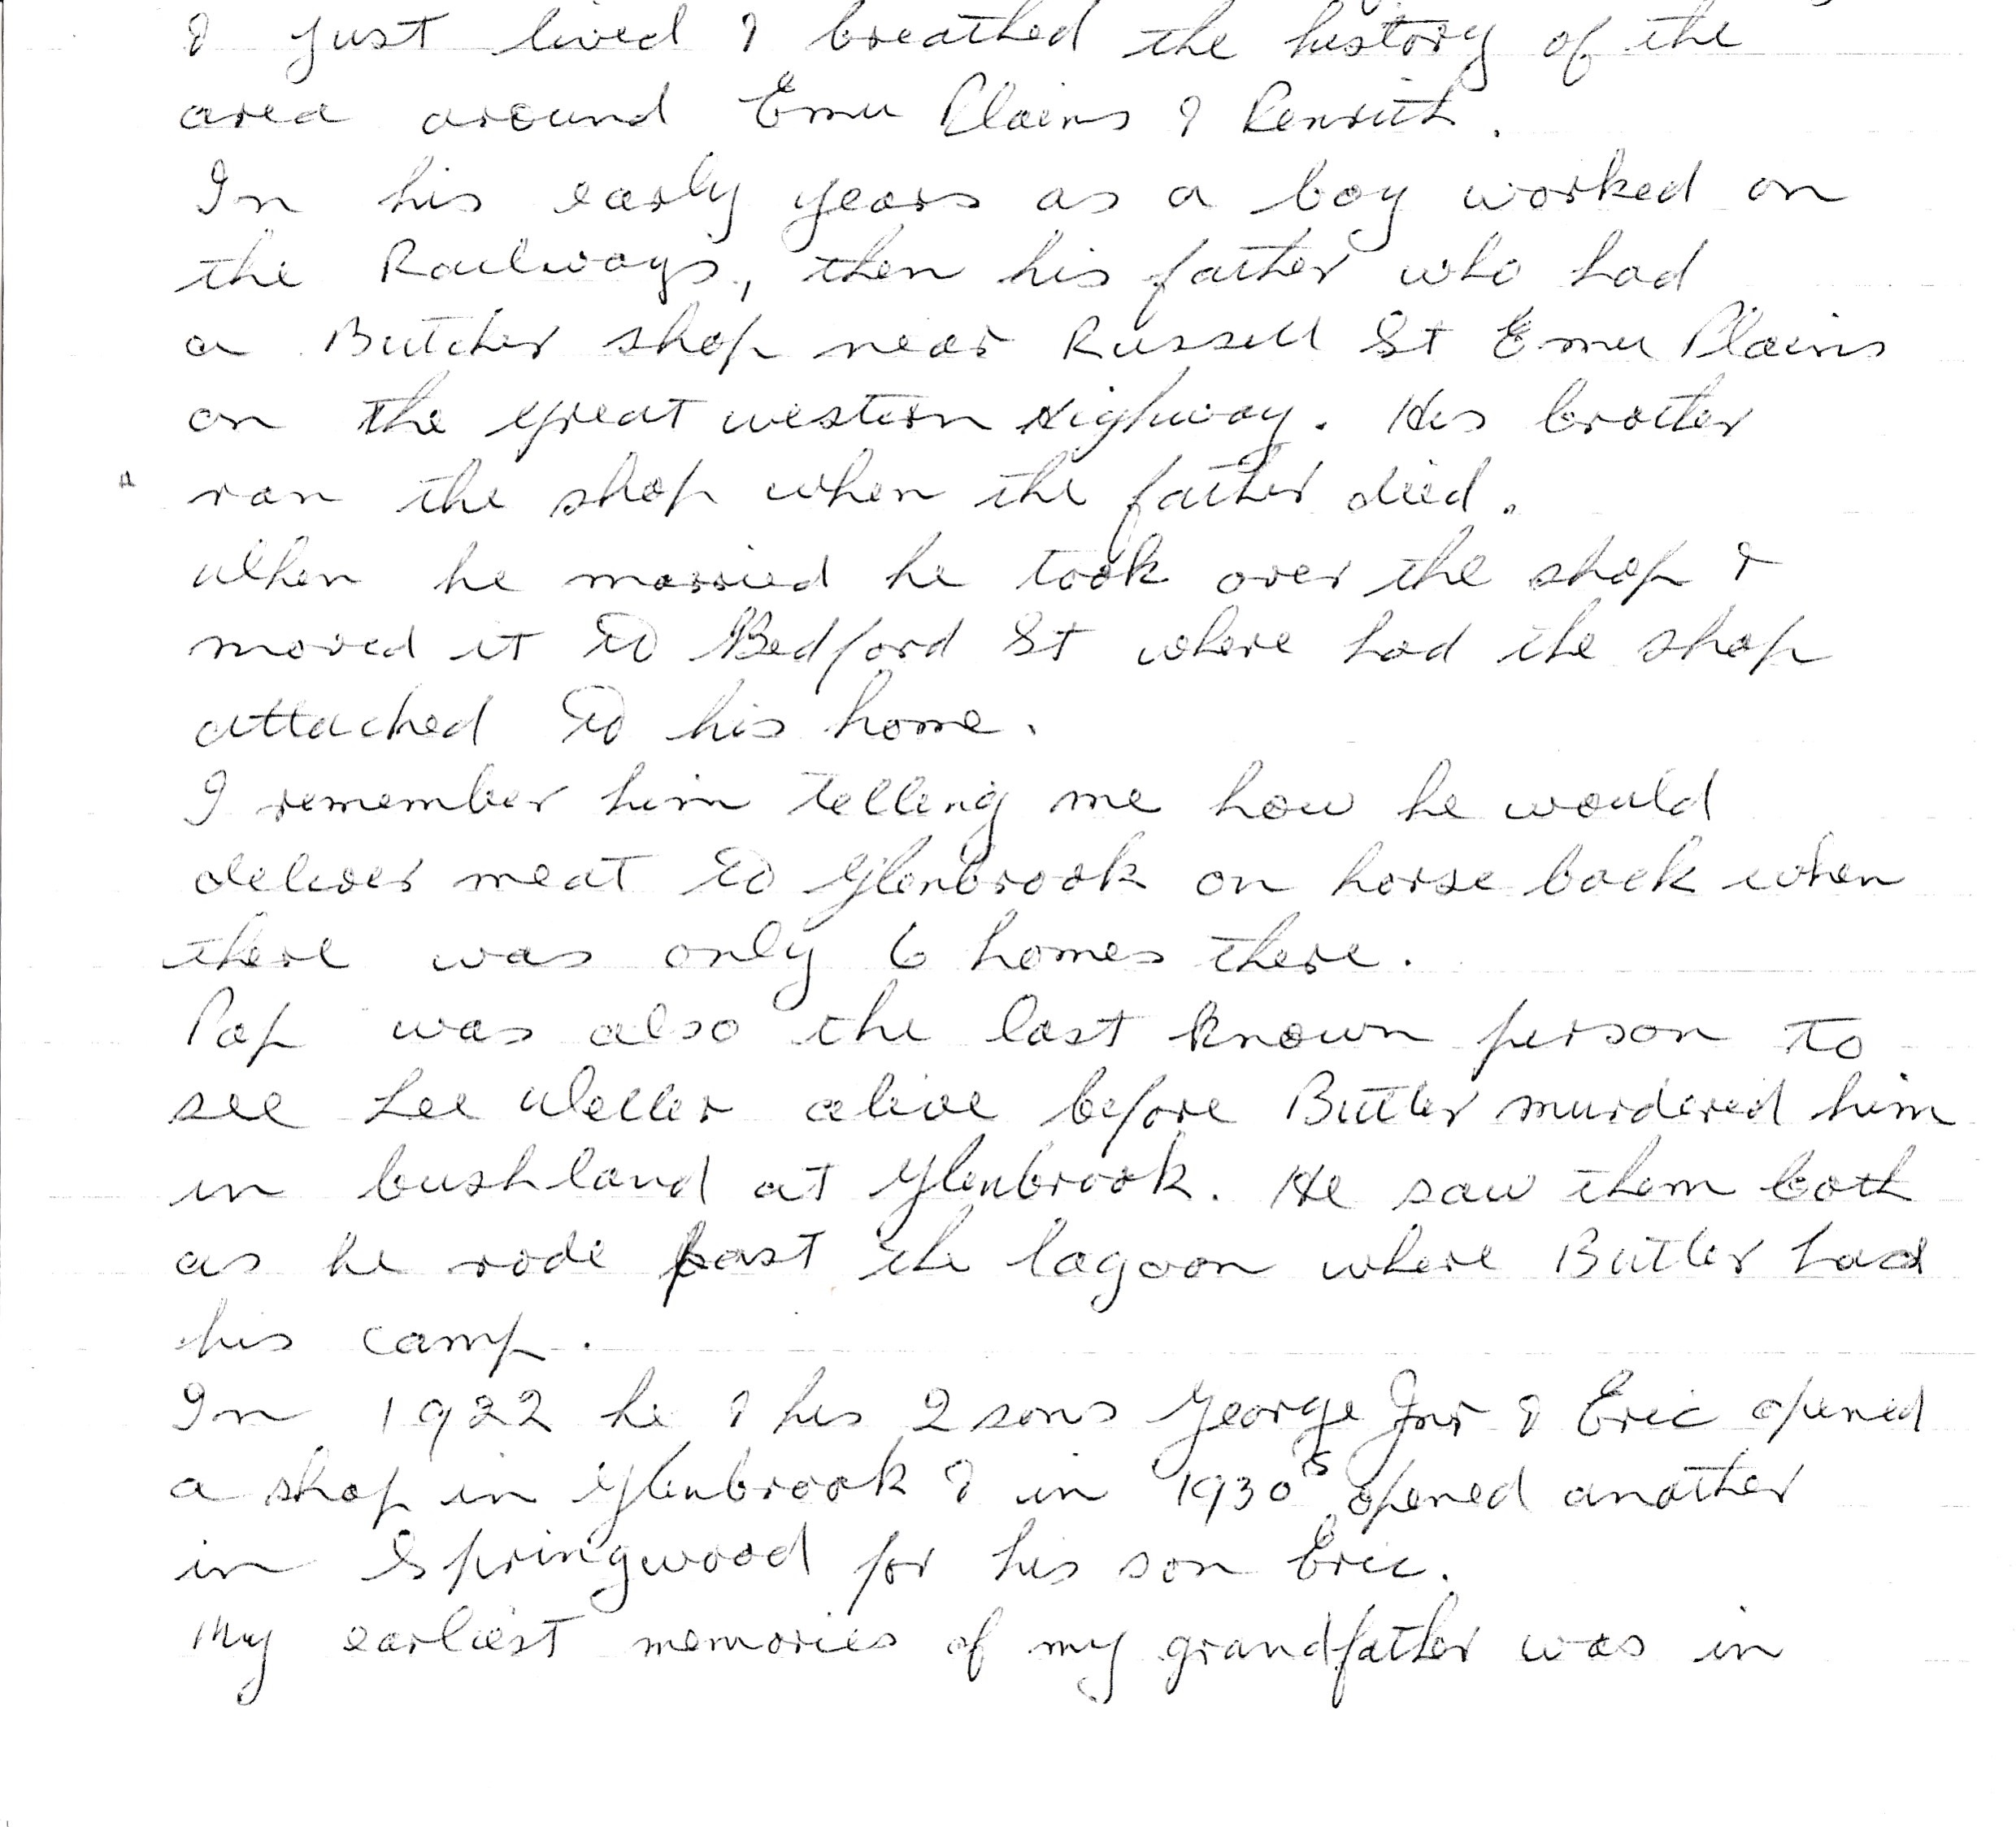 & just lived & breathed the history of the
area around Emu Plains & Penrith.
In his early years as a boy worked on
the Railways, then his father who had
a Butcher shop near Russell St Emu Plains
on the great western Highway. His brother
ran the shop when the father died.
When he married he took over the shop &
moved it to Bedford St where had the shop
attached to his home.
I remember him telling me how he would
deliver meat to Glenbrook on horse back when
there was only 6 homes there.
Pop was also the last known person to
see Lee Weller alive before Butler murdered him
in bushland at Glenbrook. He saw them both
as he rode past the lagoon where Butler had
his camp.
In 1922 he & his 2 sons George Jnr & Eric opened
a shop in Glenbrook & in 1930's opened another
in Springwood for his son Eric.
My earliest memories of my grandfather was in